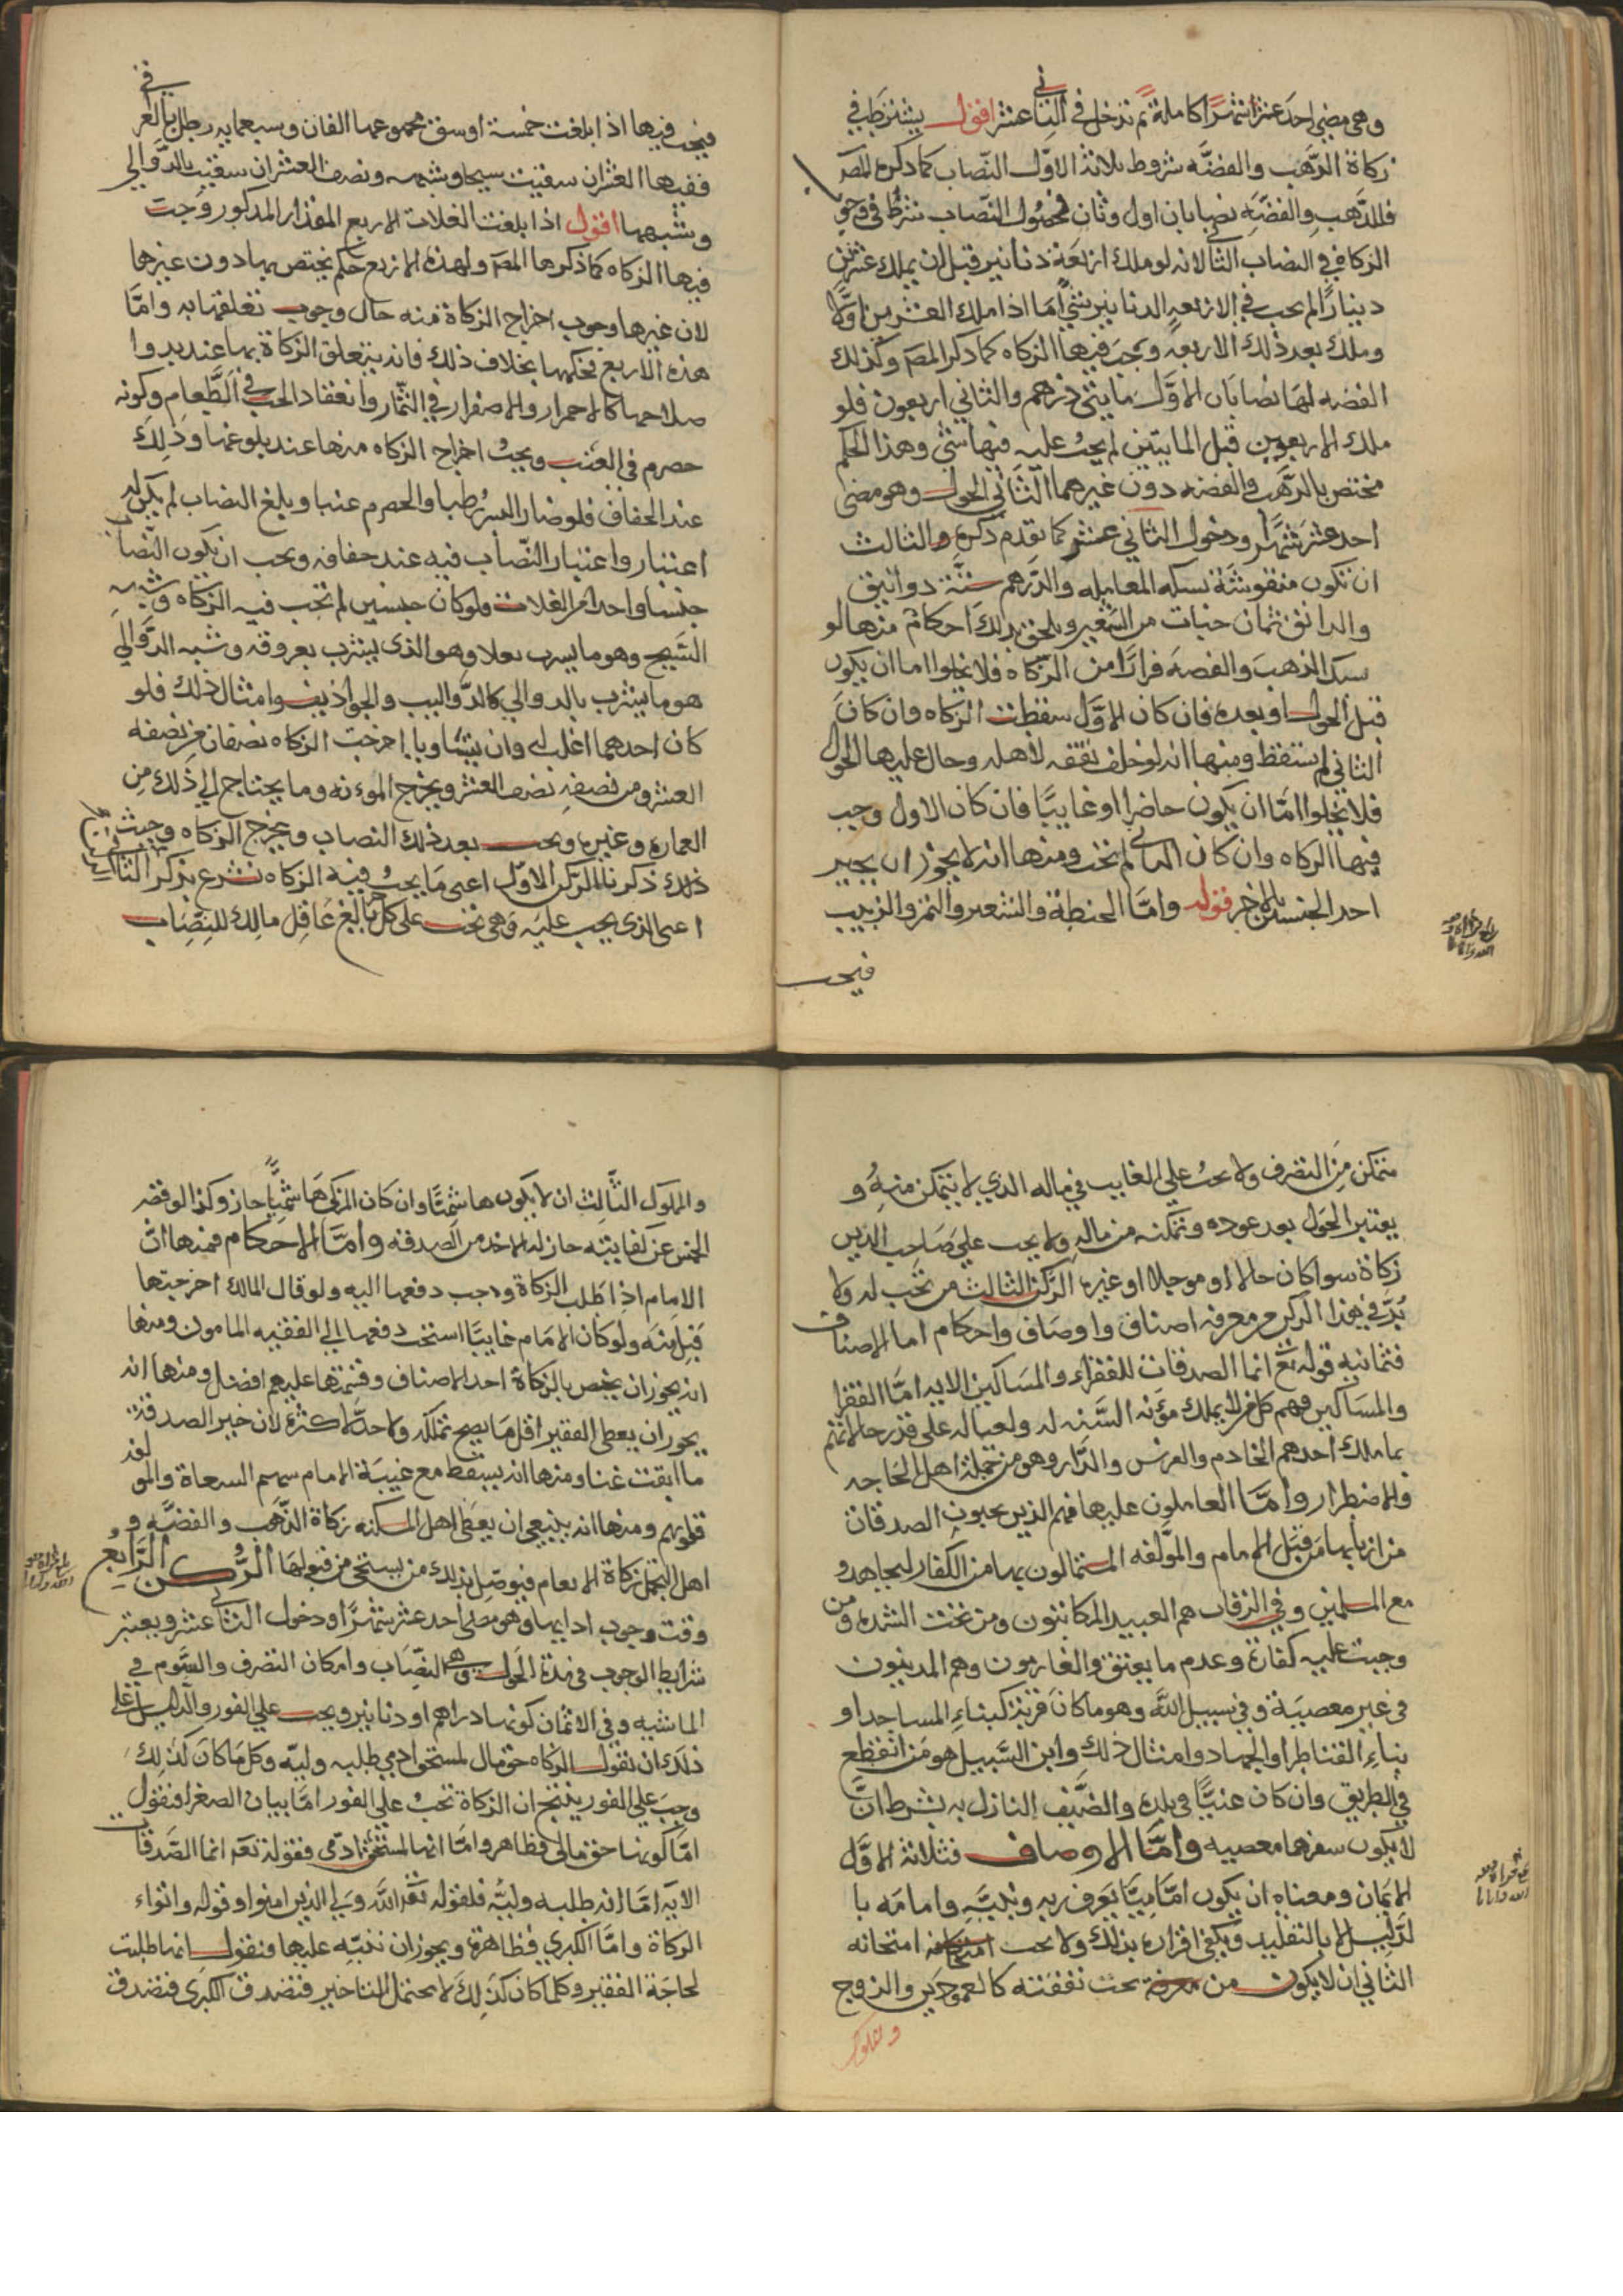 وهي مضي احد عشر شهرا كاملة ثم تدخل في الثاني عشر اقول يشترط في
زكاة الذهب والفضه شروط ثلاثة الاول النصاب كما ذكره المص
فللذهب والفضه نصابان اول وثان فحصول النصاب شرط في وجوب
الزكاة في النصاب الثاني لانه لو ملك اربعة دنانير قبل ان يملك عشرين
دينارا لم يجب في الاربعه الدنانير شي اما اذا ملك العشرين اولا
وملك بعد ذلك الاربعه وجب فيها الزكاه كما ذكر المص وكذلك
الفضه لها نصابان الاول مايتى درهم والثاني اربعون فلو
ملك الاربعين قبل المايتين لم يجب عليه فيها شي وهذا الحكم
مختص بالذهب والفضه دون غيرهما الثاني الحول وهو مضي
احد عشر شهرا ودخول الثاني عشر كما تقدم ذكره والثالث
ان تكون منقوشة بسكه المعامله والدرهم ستة دوانيق
والدانق ثمان حبات من الشعير ويلحق بذلك احكام منها لو
سبك الذهب والفضه فرارا من الزكاه فلا يخلوا اما ان يكون
قبل الحول او بعده فان كان الاول سقطت الزكاه وان كان
الثاني لم يسقط ومنها انه لو خلف نفقه لاهله وحال عليها الحول
فلا يخلوا اما ان يكون حاضرا او غايبا فان كان الاول وجب
فيها الزكاه وان كان الثاني لم تجب ومنها انه لا يجوز ان يجبر
احد الجنسين بالاخر قوله واما الحنطة والشعير والتمر والزبيب
فيجب
فيجب فيها اذا بلغت خمسة اوسق مجموعها الفان وسبعمايه رطل بالعراقي
ففيها العشر ان سقيت سيحا وشبهه ونصف العشر ان سقيت بالدوالي
وشبهها اقول اذا بلغت الغلات الاربع المقدار المذكور وجبت
فيها الزكاه كما ذكرها المص ولهذه الاربع حكم يختص بها دون غيرها
لان غيرها وجوب اخراج الزكاة منه حال وجوب تعلقها به واما
هذه الاربع فحكمها بخلاف ذلك فانه يتعلق الزكاة بها عند بدوا
صلاحها كالاحمرار والاصفرار في الثمار وانعقاد الحب في الطعام وكونه
حصرم في العنب ويجب اخراج الزكاه منها عند بلوغها وذلك
عند الجفاف فلو صار البسر رطبا والحصرم عنبا وبلغ النصاب لم يكن له
اعتبار واعتبار النصاب فيه عند جفافه ويجب ان يكون النصاب
جنسا واحدا من الغلات فلو كان جنسين لم تجب فيه الزكاه وشبه
السيح وهو ما يسرب بعلا وهو الذي يشرب بعروقه وشبه الدوالي
هو ما يشرب بالدوالي كالدواليب والجواذيف وامثال ذلك فلو
كان احدهما اغلب وان يتساويا اخرجت الزكاه نصفان من نصفه
العشر ومن نصفه نصف العشر ويخرج الموءنه وما يحتاج الي ذلك من
العماره وغيره ويجب بعد ذلك النصاب ويخرج الزكاه وحيث
ذلك ذكرنا الركن الاول اعني ما يجب فيه الزكاه نشرع بذكر الثاني
اعني الذي يجب عليه وهي تجب على كل بالغ عاقل مالك للنصاب
متمكن من التصرف ولا يجب على الغايب في ماله الذي لا يتمكن منه و
يعتبر الحول بعد عوده وتمكنه من ماله ولا يجب علي صاحب الدين
زكاة سوا كان حالا او موجلا او غيره الركن الثالث من تجب له ولا
بد في هذا الركن من معرفه اصناف واوصاف واحكام اما الاصناف
فثمانيه قوله تع انما الصدقات للفقراء والمساكين الايه اما الفقرا
والمساكين فهم كل من لا يملك مؤنه السنه له ولعياله على قدر حالاتهم
بما ملك احدهم الخادم والفرس والدار وهو من جملة اهل الحاجه
والاضطرار واما العاملون عليها فهم الذين يجبون الصدقات
من اربابها من قبل الامام والمؤلفه المستمالون بها من الكفار ليجاهدو
مع المسلمين وفي الرقاب هم العبيد المكاتبون ومن تحت الشده ومن
وجبت عليه كفارة وعدم ما يعتق والغارمون وهم المدينون
في غير معصية وفي سبيل الله وهو ما كان قربة كبناء المساجد او
بناء القناطر او الجهاد وامثال ذلك وابن السبيل هو من انقطع
في الطريق وان كان غنيا في بلده والضيف النازل به بشرط ان
لا يكون سفرها معصيه واما الاوصاف فثلاثة الاول
الايمان ومعناه ان يكون اماميا يعرف ربه ونبيه وامامه با
لدليل لا بالتقليد ويكفي اقراره بذلك ولا يجب امتحانه
الثاني ان لا يكون من تجب نفقته كالعمودين والزوج
ومملوك
والملوك الثالث ان لا يكون هاشميا وان كان المزكي هاشميا جاز وكذا لو قصر
الخمس عن كفايته جاز له الاخذ من الصدقه واما الاحكام فمنها ان
الامام اذا طلب الزكاة وجب دفعها اليه ولو قال المالك اخرجتها
قبل منه ولو كان الامام غايبا استحب دفعها الي الفقيه المامون ومنها
انه يجوز ان يخص بالزكاة احد الاصناف وقسمتها عليهم افضل ومنها انه
يجوز ان يعطي الفقير اقل ما يصح تملكه ولا حد لاكثره لان خير الصدقة
ما ابقت غنا ومنها انه يسقط مع غيبة الامام سهم السعاة والمولفه
قلوبهم ومنها انه ينبغي ان يعطي اهل المسكنه زكاة الذهب والفضه و
اهل التجمل زكاة الانعام فيوصل بذلك من يستحي من قبولها الركن الرابع
وقت وجوب ادايها وهو مضي احد عشر شهرا ودخول الثاني عشر ويعتبر
شرايط الوجوب في مدة الحول وهي النصاب وامكان التصرف والسوم في
الماشيه وفي الاثمان كونها دراهم او دنانير ويجب علي الفور والدليل علي
ذلك ان نقول الزكاه حق مال لمستحق ادمي طلبه وليه وكل ما كان كذلك
وجب علي الفور ينتج ان الزكاة تجب علي الفور اما بيان الصغرا فنقول
اما كونها حق مالي فظاهر واما انها لمستحق ادمي فقوله تع انما الصدقات
الايه اما انه طلبه وليه فلقوله تع الله ولي الذين امنوا وقوله واتواء
الزكاة واما الكبري فظاهرة ويجوز ان ننبه عليها فنقول انما طلبت
لحاجة الفقير وكلما كان كذلك لا يحتمل التاخير فتصدق الكبرى فتصدق